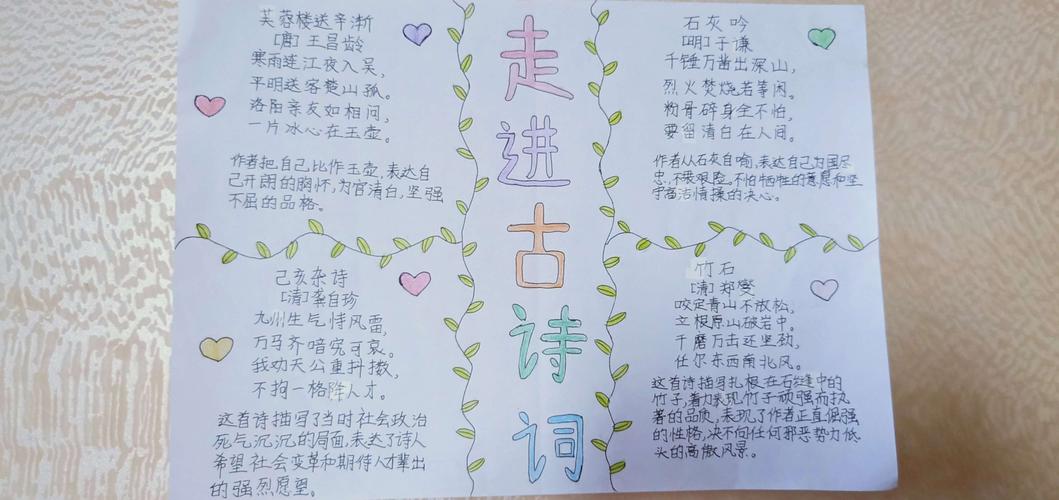 走进古诗词
芙蓉楼送辛渐
[唐]王昌龄
寒雨连江夜入吴,
平明送客楚山孤。
洛阳亲友如相问,
一片冰心在玉壶。
作者把自己比作玉壶,表达自
己开朗的胸怀,为官清白,坚强
不屈的品格。
石灰吟
[明]于谦
千锤万凿出深山,
烈火焚烧若等闲。
粉骨碎身全不怕,
要留清白在人间。
作者从石灰自喻,表达自己为国尽
忠,不畏艰险,不怕牺牲的意愿和坚
守高洁情操的决心。
己亥杂诗
[清]龚自珍
九州生气恃风雷,
万马齐喑究可哀。
我劝天公重抖擞,
不拘一格降人才。
这首诗描写了当时社会政治
死气沉沉的局面,表达了诗人
希望社会变革和期待人才辈出
的强烈愿望。
竹石
[清]郑燮
咬定青山不放松,
立根原山破岩中。
千磨万击还坚劲,
任尔东西南北风。
这首诗描写扎根在石缝中的
竹子,着力表现竹子顽强而执
著的品质,表现了作者正直倔强
的性格,决不向任何邪恶势力低
头的高傲风景。